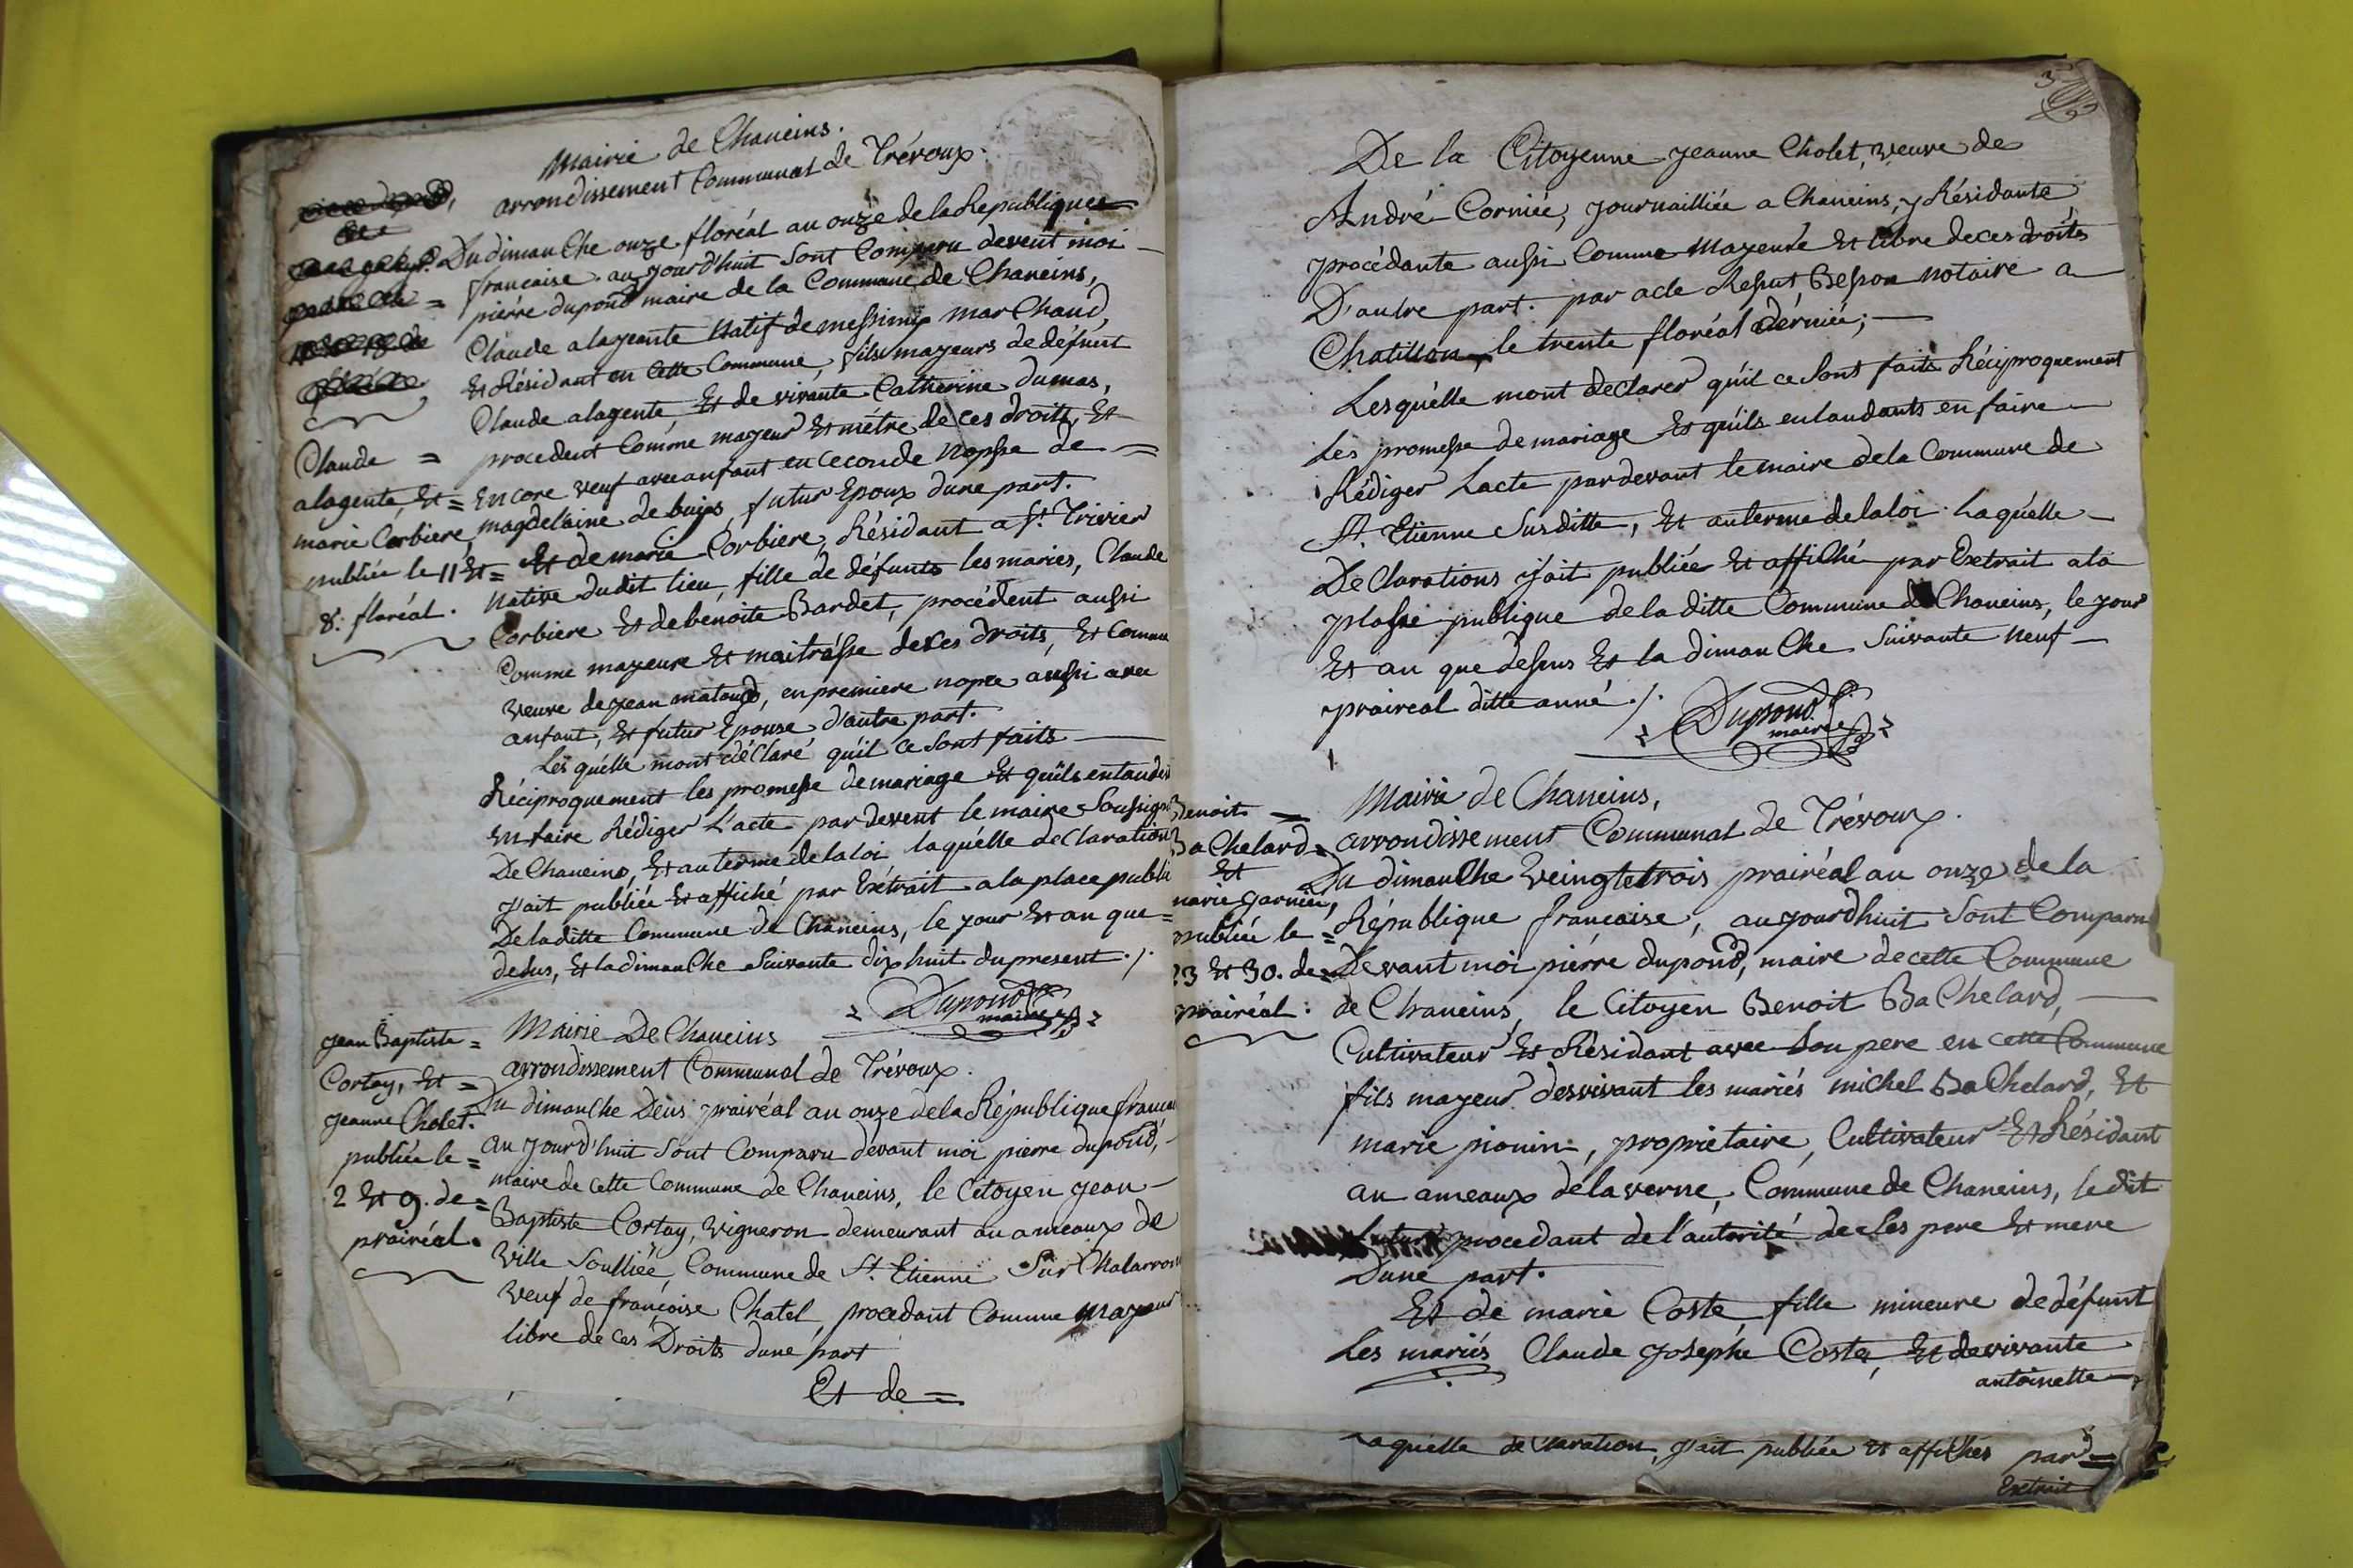 Mairie de Chaneins.
arrondissement Communal de Trévoux.
Du dimanChe onze floréal an onze de la Republique
francaise aujourd'huit Sont Comparu devent moi
pièrre dupond maire de la Commune de Chaneins,
Claude alagente Natif de messimy marChand,
Et Résidant en Cette Commune, fils mayeurs de défunt
Claude alagente, Et de vivante Catherine dumas,
procedent Comme mayeur Et métre de ces droits, Et
Encore veuf avec anfant en Ceconde Nopsse de =
magdelaine de buys, futur Epoux dune part.
Et de marie Corbiere, Résidant a St. Trivier
Native dudit lieu, fille de défunts les mariés, Claude
Corbiere Et de benoite Bardet, procédent aussi
Comme mayeure Et maitrásse de ces droits, Et Comme
veuve de jean mataud, en premiere nopce aussi avec
anfant, Et futur Epouse d'autre part.
Les quélle mont déClaré qu'il ce Sont faits
Réciproquement les promesse de mariage Et quils entaudent
En faire Rédiger L'acte par devent le maire Soussigné
De Chaneins, Et au terme de la loi laquélle deClaration
j'ait publiée Et affiché par Extrait a la place publi
De la ditte Commune de Chaneins, le jour Et an que =
desus, Et la dimanChe Suivante dix huit du present ./.
Dupond
maire
Claude =
alagente, Et =
marie Corbiere
publiée le 11 Et =
8: floréal.
jean Baptiste =
Cortay, Et =
jeanne Cholet.
publiée le =
2 Et 9. de =
prairéal.
Mairie De Chaneins
arrondissement Communal de Trévoux.
Du dimanChe Deus prairéal an onze de la République francai
au jourd'huit Sont Comparu devant moi pierre dupond,
maire de cette Commune de Chaneins, le Citoyen jean
Baptiste Cortay, vigneron demeurant au ameaux de
Ville Soulliée, Commune de St. Etienne Sur Chalaronne
veuf de françoise Chatel, procedant Comme mayeur
libre de ces Droits dune part
Et de =
3
De la Citoyenne jeanne Cholet, veuve de
André Corniée, journailliée a Chaneins, y Résidante
procédante aussi Comme mayeure Et libre de ces droits
D'autre part. par acte Resut Besson notaire a
Chatillon, le trente floréal derniée;
Lesquélle mont déClarer qu'il ce Sont faits Réciproquement
Les promesse de mariage Et quils entaudants en faire
Rédiger Lacte pardevant le maire de la Commune de
St. Etienne Susditte, Et au terme de la loi. Laquélle
DeClarations j'ait publiée Et affiché par Extrait a la
plasse publique de la ditte Commune de Chaneins, le jour
Et an que dessus Et la dimanChe Suivante neuf
praireal ditte anné ./.
Dupond
maire
Benoit =
BaChelard =
Et
marie garniée,
publiée le =
23 Et 30. de =
prairéal :
Mairie de Chaneins,
arrondissement Communal de Trévoux.
Du dimanChe veingtetrois prairéal an onze de la
République francaise, aujourdhuit Sont Comparu
Devant moi pièrre dupond, maire de cette Commune
de Chaneins, le Citoyen Benoit BaChelard,
Cultivateur Et Résidant avec Son pere en cette Commune
fils mayeur desvivant les mariés miChel BaChelard, Et
marie pionin, propriétaire, Cultivateur Et Résidant
au ameaux de la verne, Commune de Chaneins, le dit
futur procedant de l'autorité de Ses pere Et mere
Dune part.
Et de marie Coste, fille mineure de défunt
Les mariés Claude josephé Coste, Et de vivante
antoinette
Laquélle déClaration, j'ait publiée Et affichés par =
Extrait